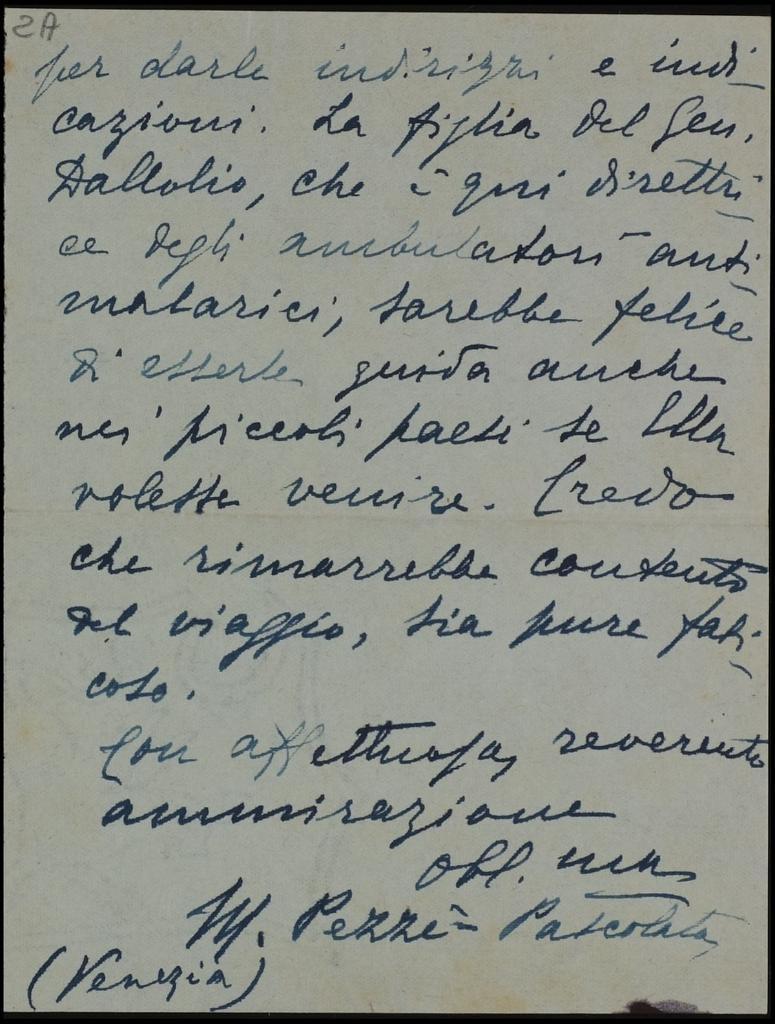 2A
per darle indirizzi e indi-
cazioni. La figlia del Gen.
Dallolio, che è qui direttri-
ce degli ambulatori anti-
malarici, sarebbe felice
di esserle guida anche
nei piccoli paesi se Ella
volesse venire. Credo
che rimarrebbe contento
del viaggio, sia pure fati-
coso.
Con affettuosa, reverente
ammirazione
obbl. ma
M. Pezzè-Pascolato
(Venezia)